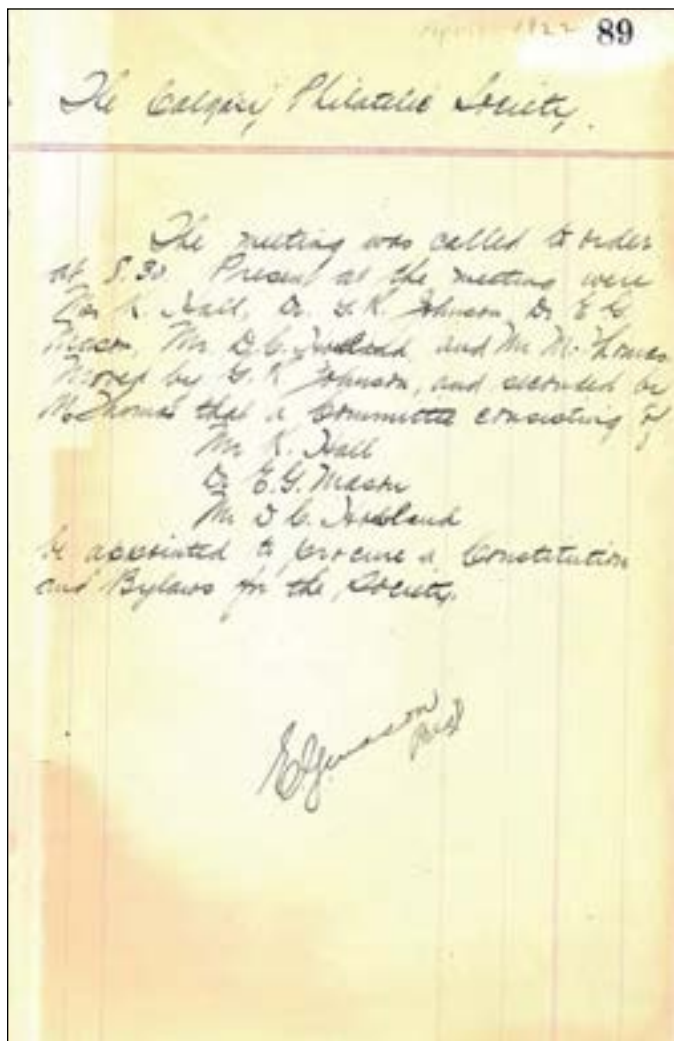 April 1922 89
The Calgary Philatelic Society.
The meeting was called to order
at 8.30. Present at the meeting were
K. Hall, Dr. G. R. Johnson, Dr E G
Mason, Mr. D. C. and Mr M. Thomas
Moved by G. R Johnson, and seconded by
M. Thomas that a Committee consisting of
Mr K. Hall
Dr E. G. Mason
Mr D C.
be appointed to procure a Constitution
and Bylaws for the Society.
E G Mason
Pres